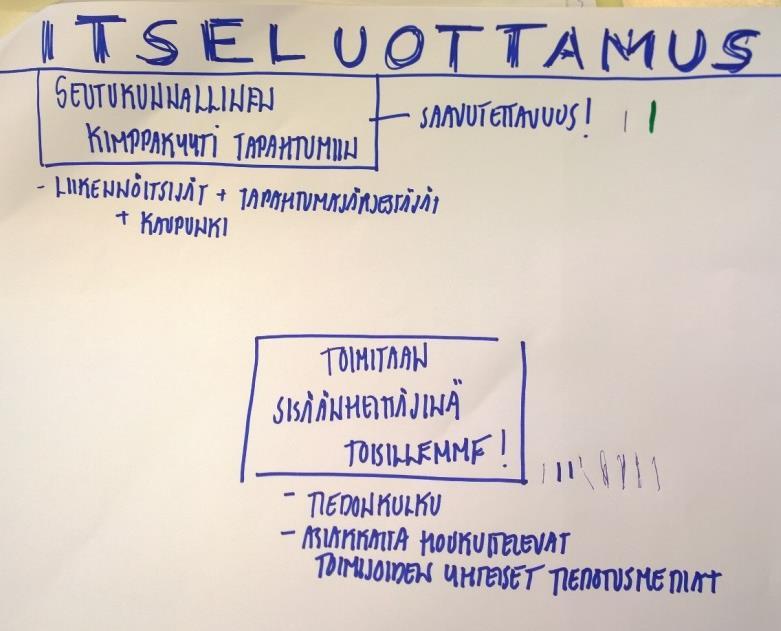 ITSELUOTTAMUS
SEUTUKUNNALLINEN
KIMPPAKYYTI TAPAHTUMIIN
– SAAVUTETTAVUUS!
- LIIKENNÖITSIJÄT + TAPAHTUMAJÄRJESTÄJÄT
+ KAUPUNKI
TOIMITAAN
SISÄÄNHEITTÄJINÄ
TOISILLEMME!
- TIEDONKULKU
- ASIAKKAITA HOUKUTTELEVAT
TOIMIJOIDEN YHTEISET TIEDOTUSMEDIAT